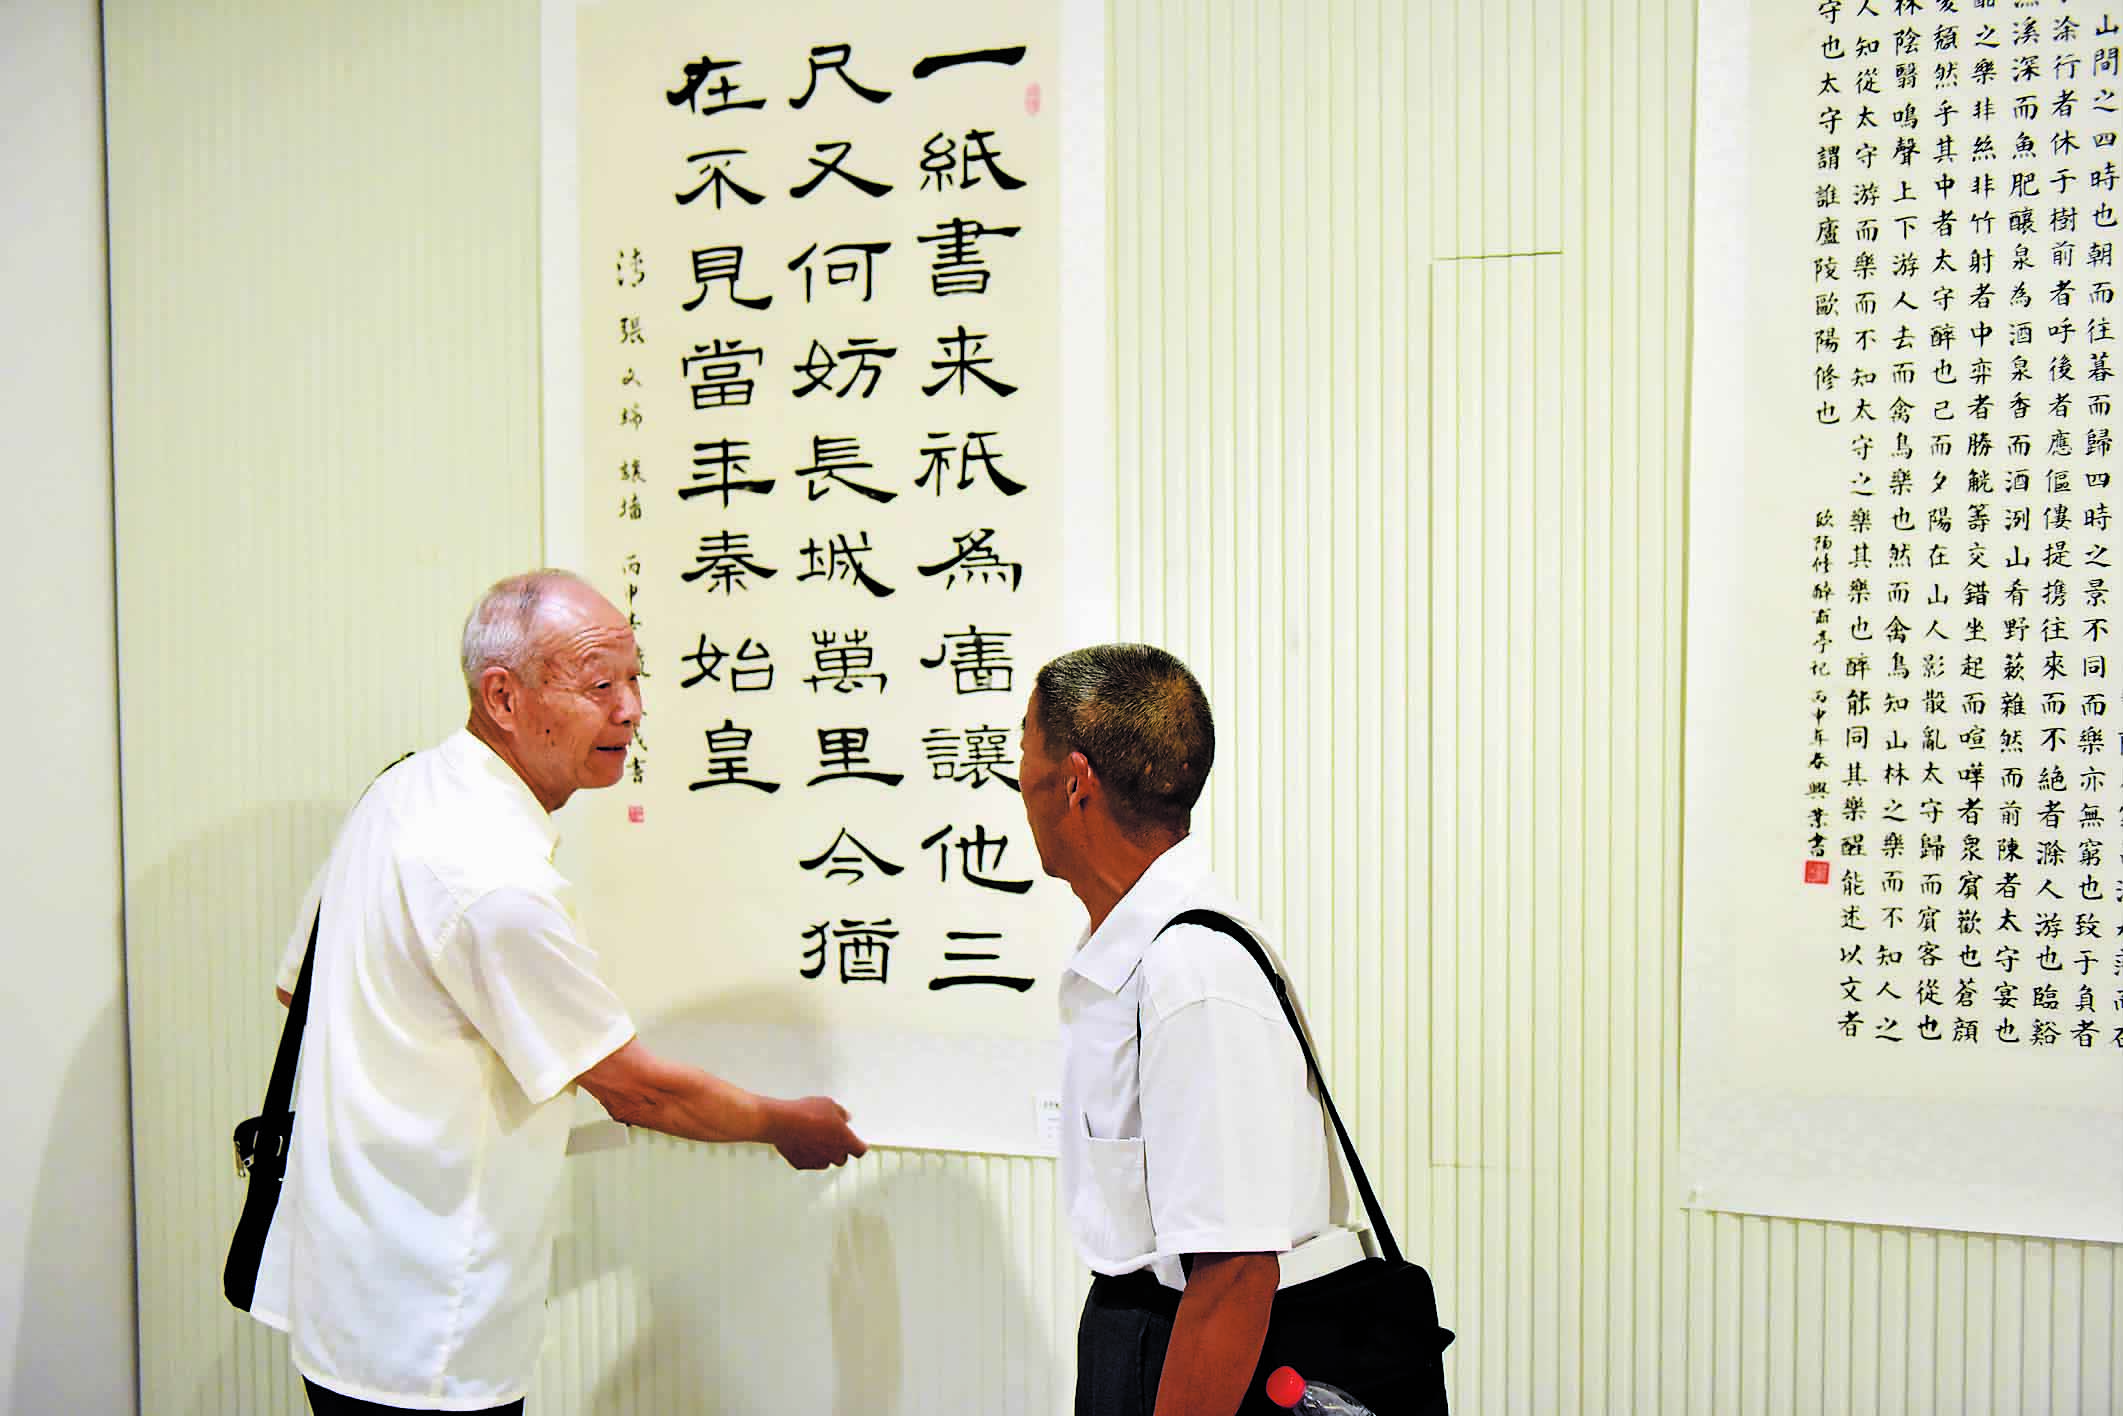 一紙書来祇為廧讓他三
尺又何妨長城萬里今猶
在不見當年秦始皇
清張文端 讓墻 丙申 書
山間之四時也朝而往暮而歸四時之景不同而樂亦無窮也致于負者
涂行者休于樹前者呼後者應傴僂提携往來而不絶者滁人游也臨谿
溪深而魚肥釀泉為酒泉香而酒洌山肴野蔌雜然而前陳者太守宴也
之樂非絲非竹射者中弈者勝觥籌交錯坐起而喧嘩者衆賓歡也蒼顔
頹然乎其中者太守醉也已而夕陽在山人影散亂太守歸而賓客從也
林陰翳鳴聲上下游人去而禽鳥樂也然而禽鳥知山林之樂而不知人之
人知從太守游而樂而不知太守之樂其樂也醉能同其樂醒能述以文者
守也太守謂誰廬陵歐陽修也
欧陽修醉翁亭記 丙申年春興業書